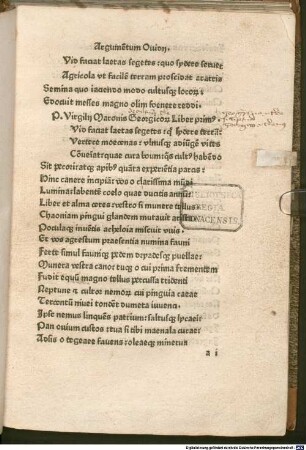 Argumētum Ouidij.
Vid faciat laetas segetes: quo sydere seruet
Agricola ut facilē terram proscindat aratris
Semina quo iaciendo modo cultusq; locorꝝ:
Edocuit messes magno olim foenere reddi.
P. Virgilij Maronis Georgicoꝝ Liber primꝰ.
Vid faciat laetas segetes: quo sydere terrā
Vertere moecenas: ulmisq; adiūgē uitis
Cōueiat: quae cura boum: qs cultꝰ habēdo
Sit pecori: atq; apibꝰ quāta experiētia parcis:
Hinc canere incipiā: uos o clarissima mūdi
Lumina: labentē coelo quae ducitis annū:
Liber et alma ceres: uestro si munere tellus
Chaoniam pingui glandem mutauit arista
Poculaq; inuētis acheloia miscuit uuis:
Et uos agrestum praesentia numina fauni
Ferte simul fauniq; pedem dryadesq; puellae:
Munera uestra cano: tuq; o cui prima frementem
Fudit equū magno tellus percussa tridenti
Neptune: et cultor nemorꝝ cui pinguia caeae
Tercentū niuei tondēt dumeta iuuenci:
Ipse nemus linquēs patrium: saltusq; lycaei
Pan ouium custos: tua si tibi maenala curae:
Adsis o tegeaee fauens: oleaeq; minerua
REGIA
MONACENSIS.
a i